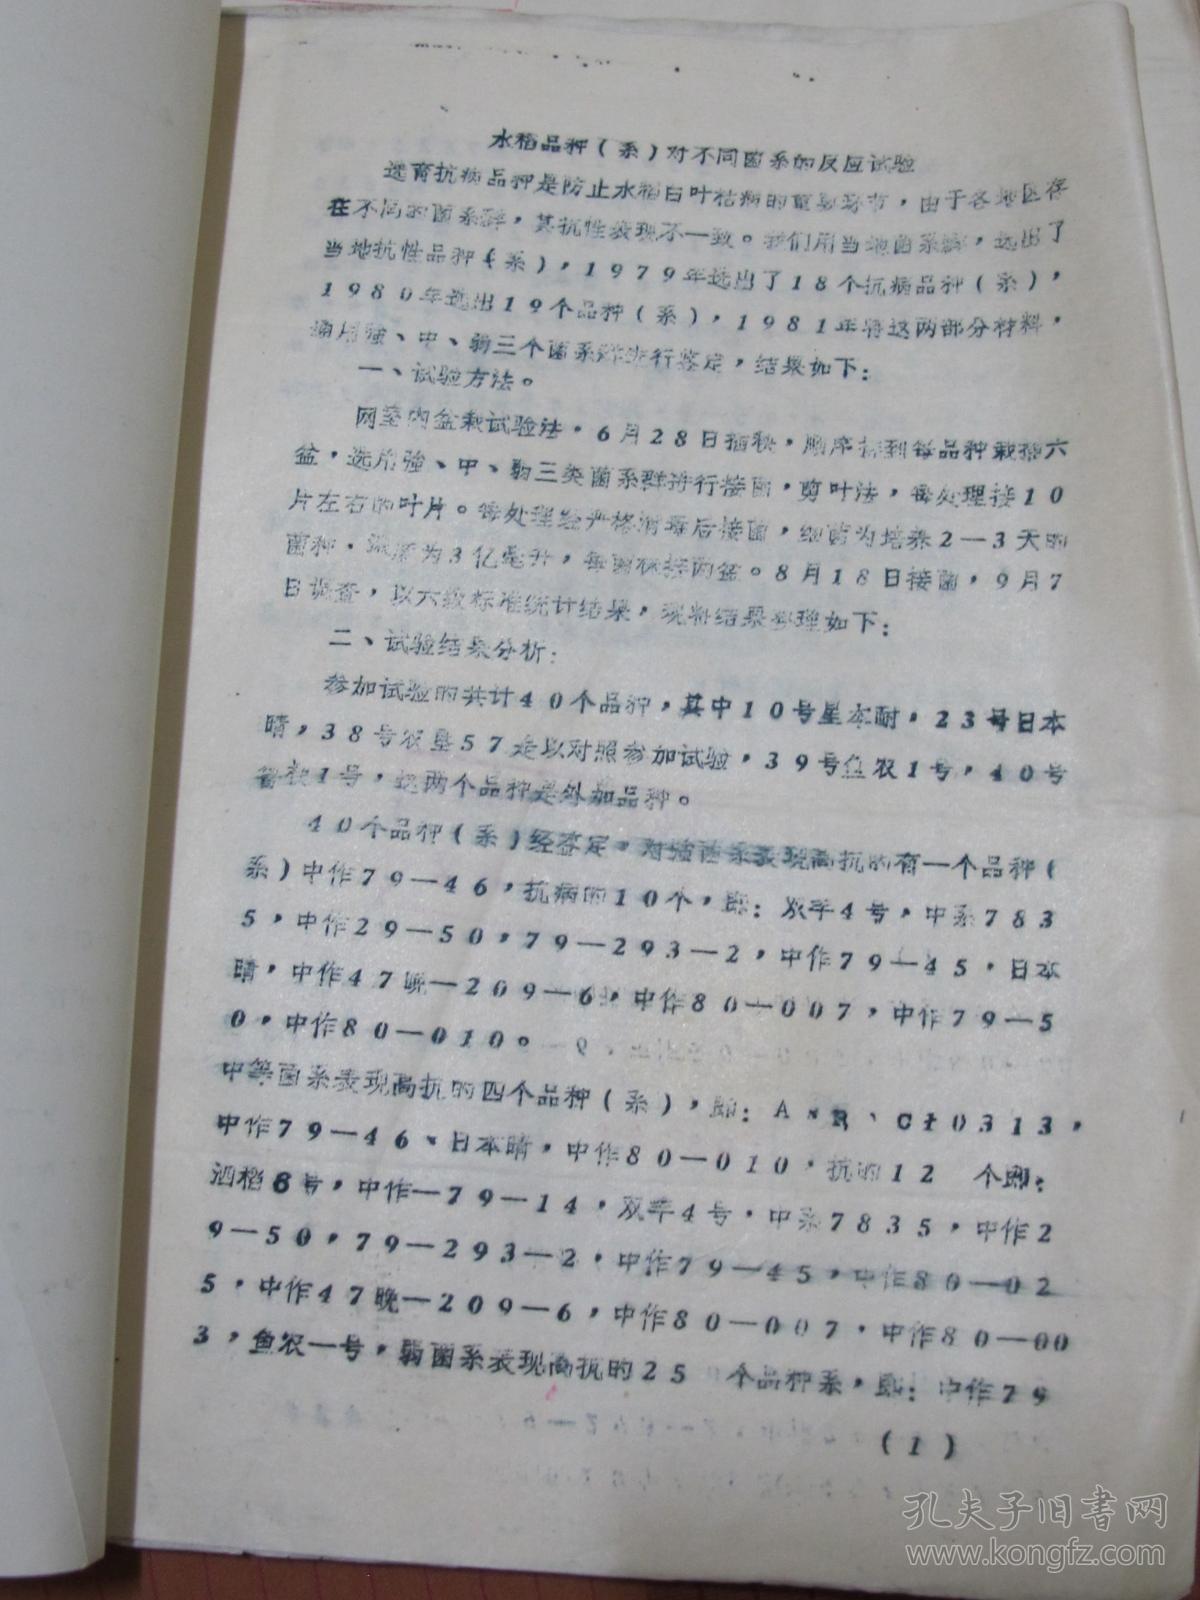 水稻品种(系)对不同菌系的反应试验
选育抗病品种是防止水稻白叶枯病的重要环节，由于各地区存
在不同的菌系群，其抗性表现不一致。我们用当地菌系群，选出了
当地抗性品种(系)，1979年选出了18个抗病品种(系)，
1980年选出19个品种(系)，1981年将这两部分材料，
通用强、中、弱三个菌系群进行鉴定，结果如下：
一、试验方法。
网室内盆栽试验法，6月28日插秧，顺序排到每品种栽插六
盆，选用强、中、弱三类菌系群进行接菌，剪叶法，每处理接10
片左右的叶片。每处理经严格消毒后接菌，细菌为培养2—3天的
菌种，浓度为3亿毫升，每菌株接两盆。8月18日接菌，9月7
日调查，以六级标准统计结果，现将结果整理如下：
二、试验结果分析：
参加试验的共计40个品种，其中10号星本耐，23号日本
晴，38号农垦57是以对照参加试验，39号鱼农1号，40号
秋1号，这两个品种是外加品种。
40个品种(系)经鉴定，对强菌系表现高抗的有一个品种(
系)中作79—46，抗病的10个，即：双丰4号，中系783
5，中作29—50，79—293—2，中作79—45，日本
晴，中作47晚—209—6，中作80—007，中作79—5
0，中作80—010。
中等菌系表现高抗的四个品种(系)，即：A×R、C±0313，
中作79—46、日本晴，中作80—010，抗的12 个即：
泗稻8号，中作—79—14，双丰4号，中系7835，中作2
9—50，79—293—2，中作79—45，中作80—02
5，中作47晚—209—6，中作80—007，中作80—00
3，鱼农一号，弱菌系表现高抗的25 个品种系，即：中作79
(1)
孔夫子旧书网
www.kongfz.com